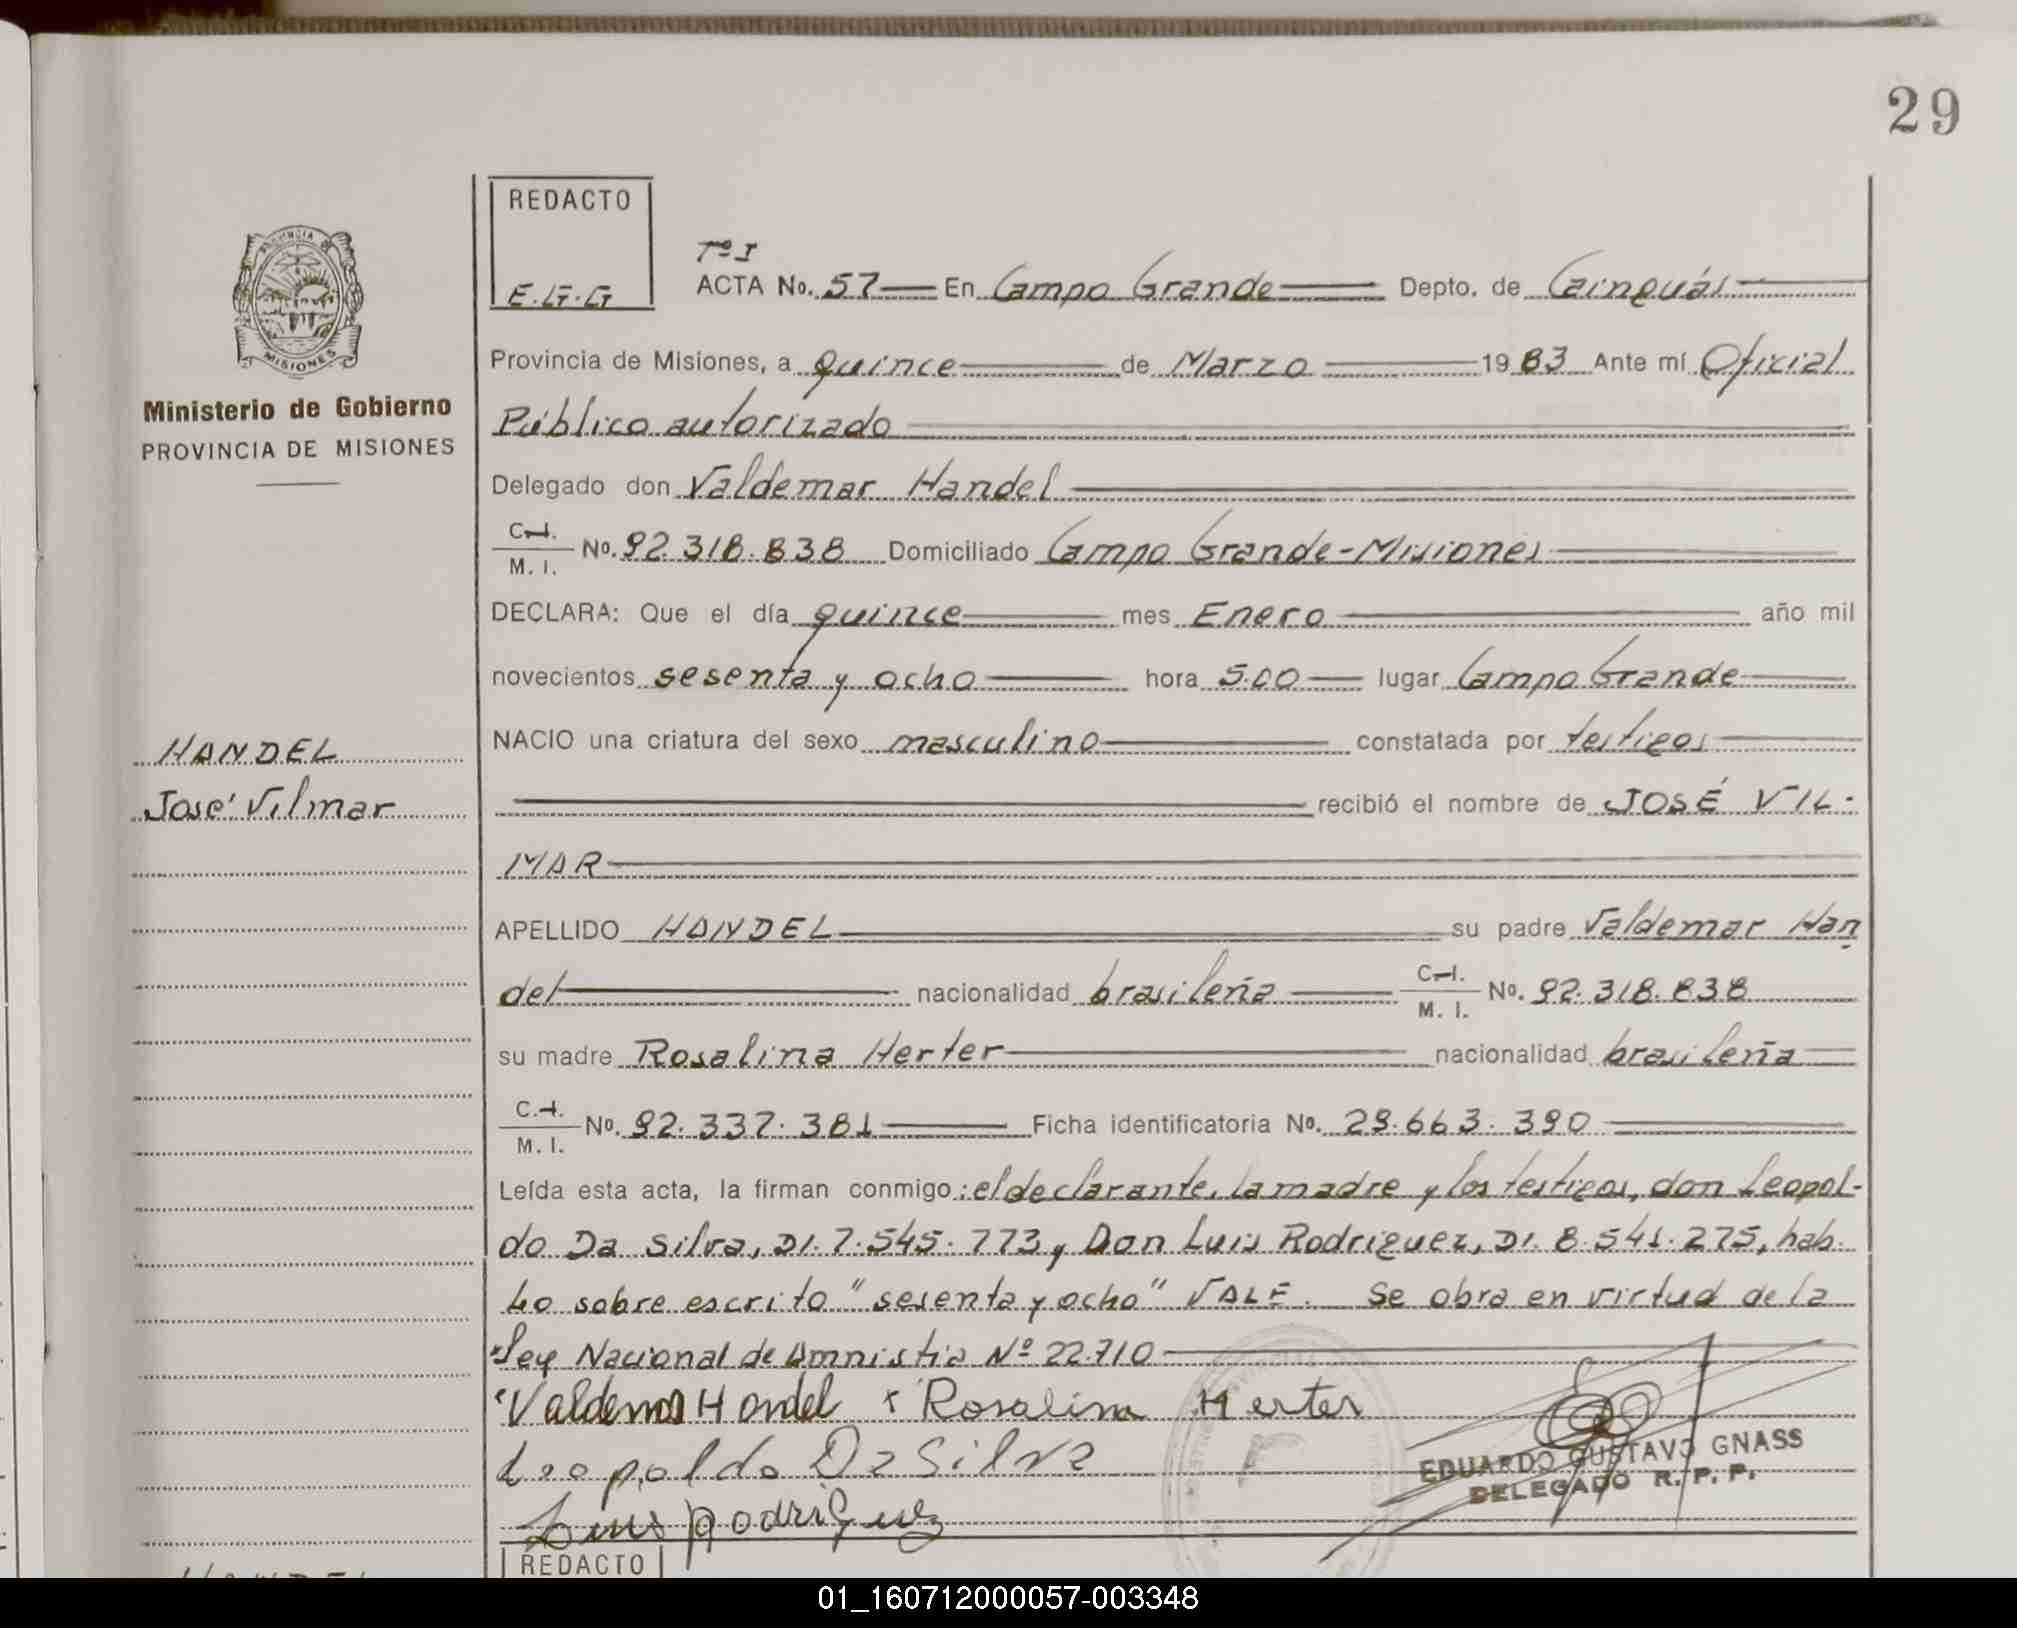 29
REDACTO
E.G.G
Tº I
ACTA No. 57 En Campo Grande Depto. de Cainguás
PROVINCIA DE
MISIONES
Provincia de Misiones, a quince de Marzo 1983 Ante mí Oficial
Ministerio de Gobierno
PROVINCIA DE MISIONES
Público autorizado
Delegado don Valdemar Handel
C.I. M. I. No. 92.318.838 Domiciliado Campo Grande-Misiones
DECLARA: Que el día quince mes Enero año mil
novecientos sesenta y ocho hora 5.00 lugar Campo Grande
HANDEL
José Vilmar
NACIO una criatura del sexo masculino constatada por testigos
recibió el nombre de JOSÉ VIL-
MAR
APELLIDO HANDEL su padre Valdemar Han
del nacionalidad brasileña C.I. M. I. No. 92.318.838
su madre Rosalina Herter nacionalidad brasileña
C.I. M. I. No. 92.337.381 Ficha identificatoria No. 29.663.390
Leída esta acta, la firman conmigo: el declarante, la madre y los testigos, don Leopol-
do Da Silva, DI. 7.545.773 y Don Luis Rodriguez, DI. 8.541.275, hab.
Lo sobre escrito "sesenta y ocho" VALE. Se obra en virtud de la
Ley Nacional de Amnistia Nº 22.710
Valdemar Handel x Rosalina Herter
Leopoldo Da Silva
EDUARDO GUSTAVO GNASS
DELEGADO R. P. P.
Luis Rodriguez
REDACTO
HANDEL
01_160712000057-003348